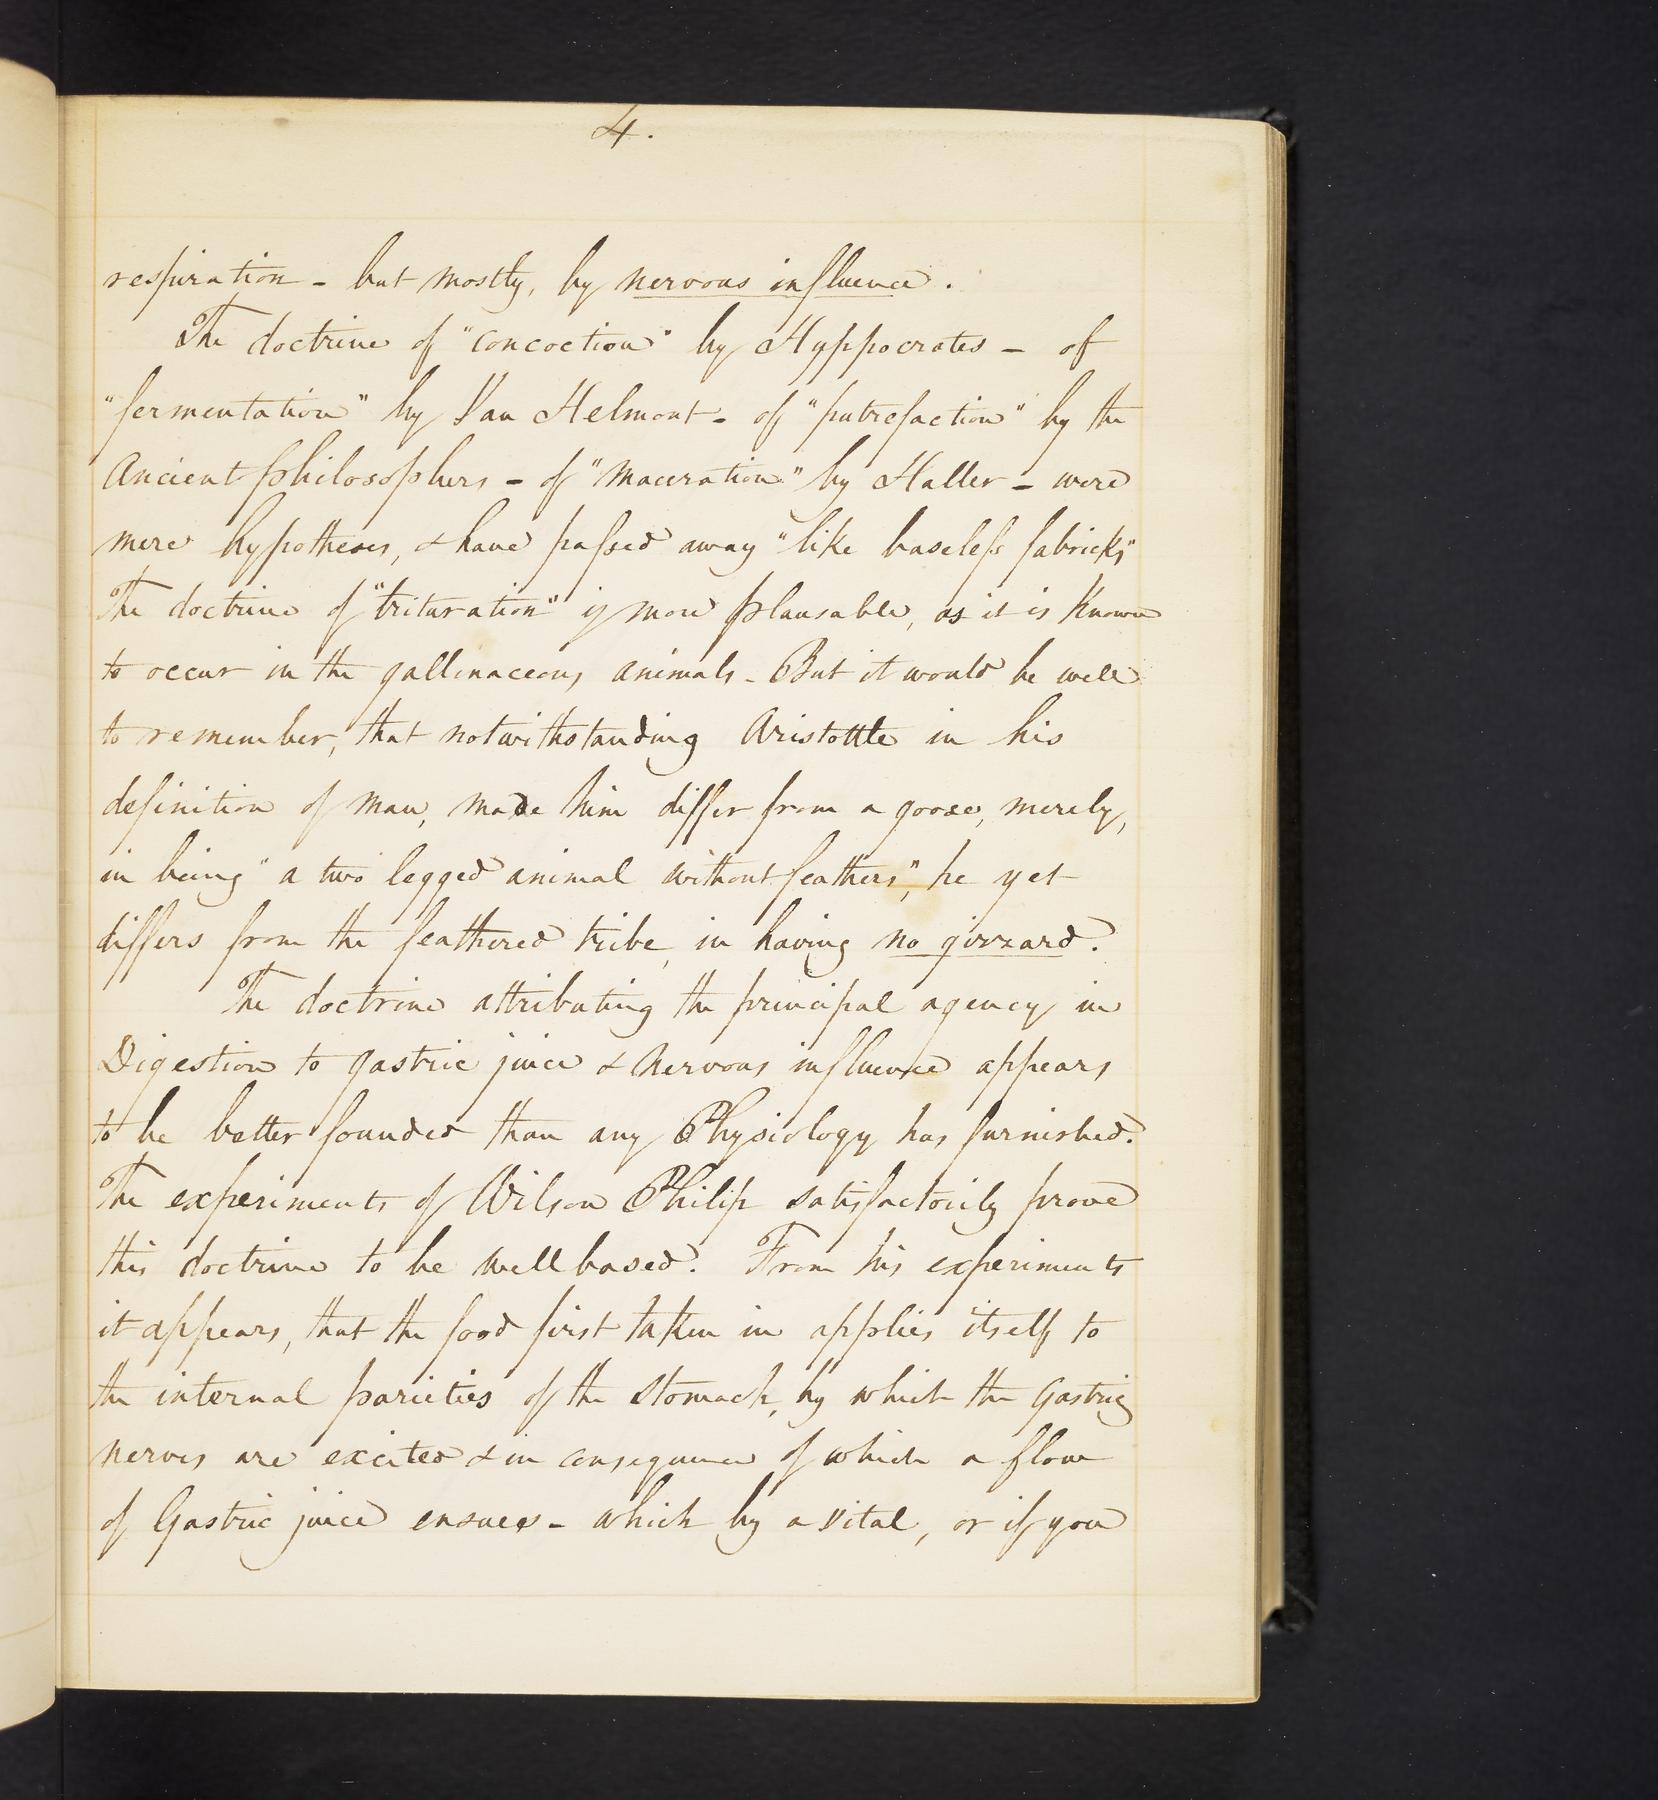 4.
respiration - but mostly, by nervous influence.
The doctrine of "concoction" by Hyppocrates - of
"fermentation" by Van Helmont - of "putrefaction" by the
Ancient philosophers - of "maceration" by Haller - were
mere hypotheses, & have passed away "like baseless fabricks"
The doctrine of "trituration" is more plausable, as it is known
to occur in the gallinaceous animals - But it would be well
to remember, that notwithstanding Aristottle in his
definition of man, made him differ from a goose, merely,
in being "a two legged animal without feathers", he yet
differs from the feathered tribe, in having no gizzard.
The doctrine attributing the principal agency in
Digestion to gastric juice & nervous influence appears
to be better founded than any Physiology has furnished.
The experiments of Wilson Philip satisfactorily prove
this doctrine to be well based. From his experiments
it appears, that the food first taken in applies itself to
the internal parieties of the stomach, by which the Gastric
nerves are excited & in consequence of which a flow
of Gastric juice ensues - which by a vital, or if you